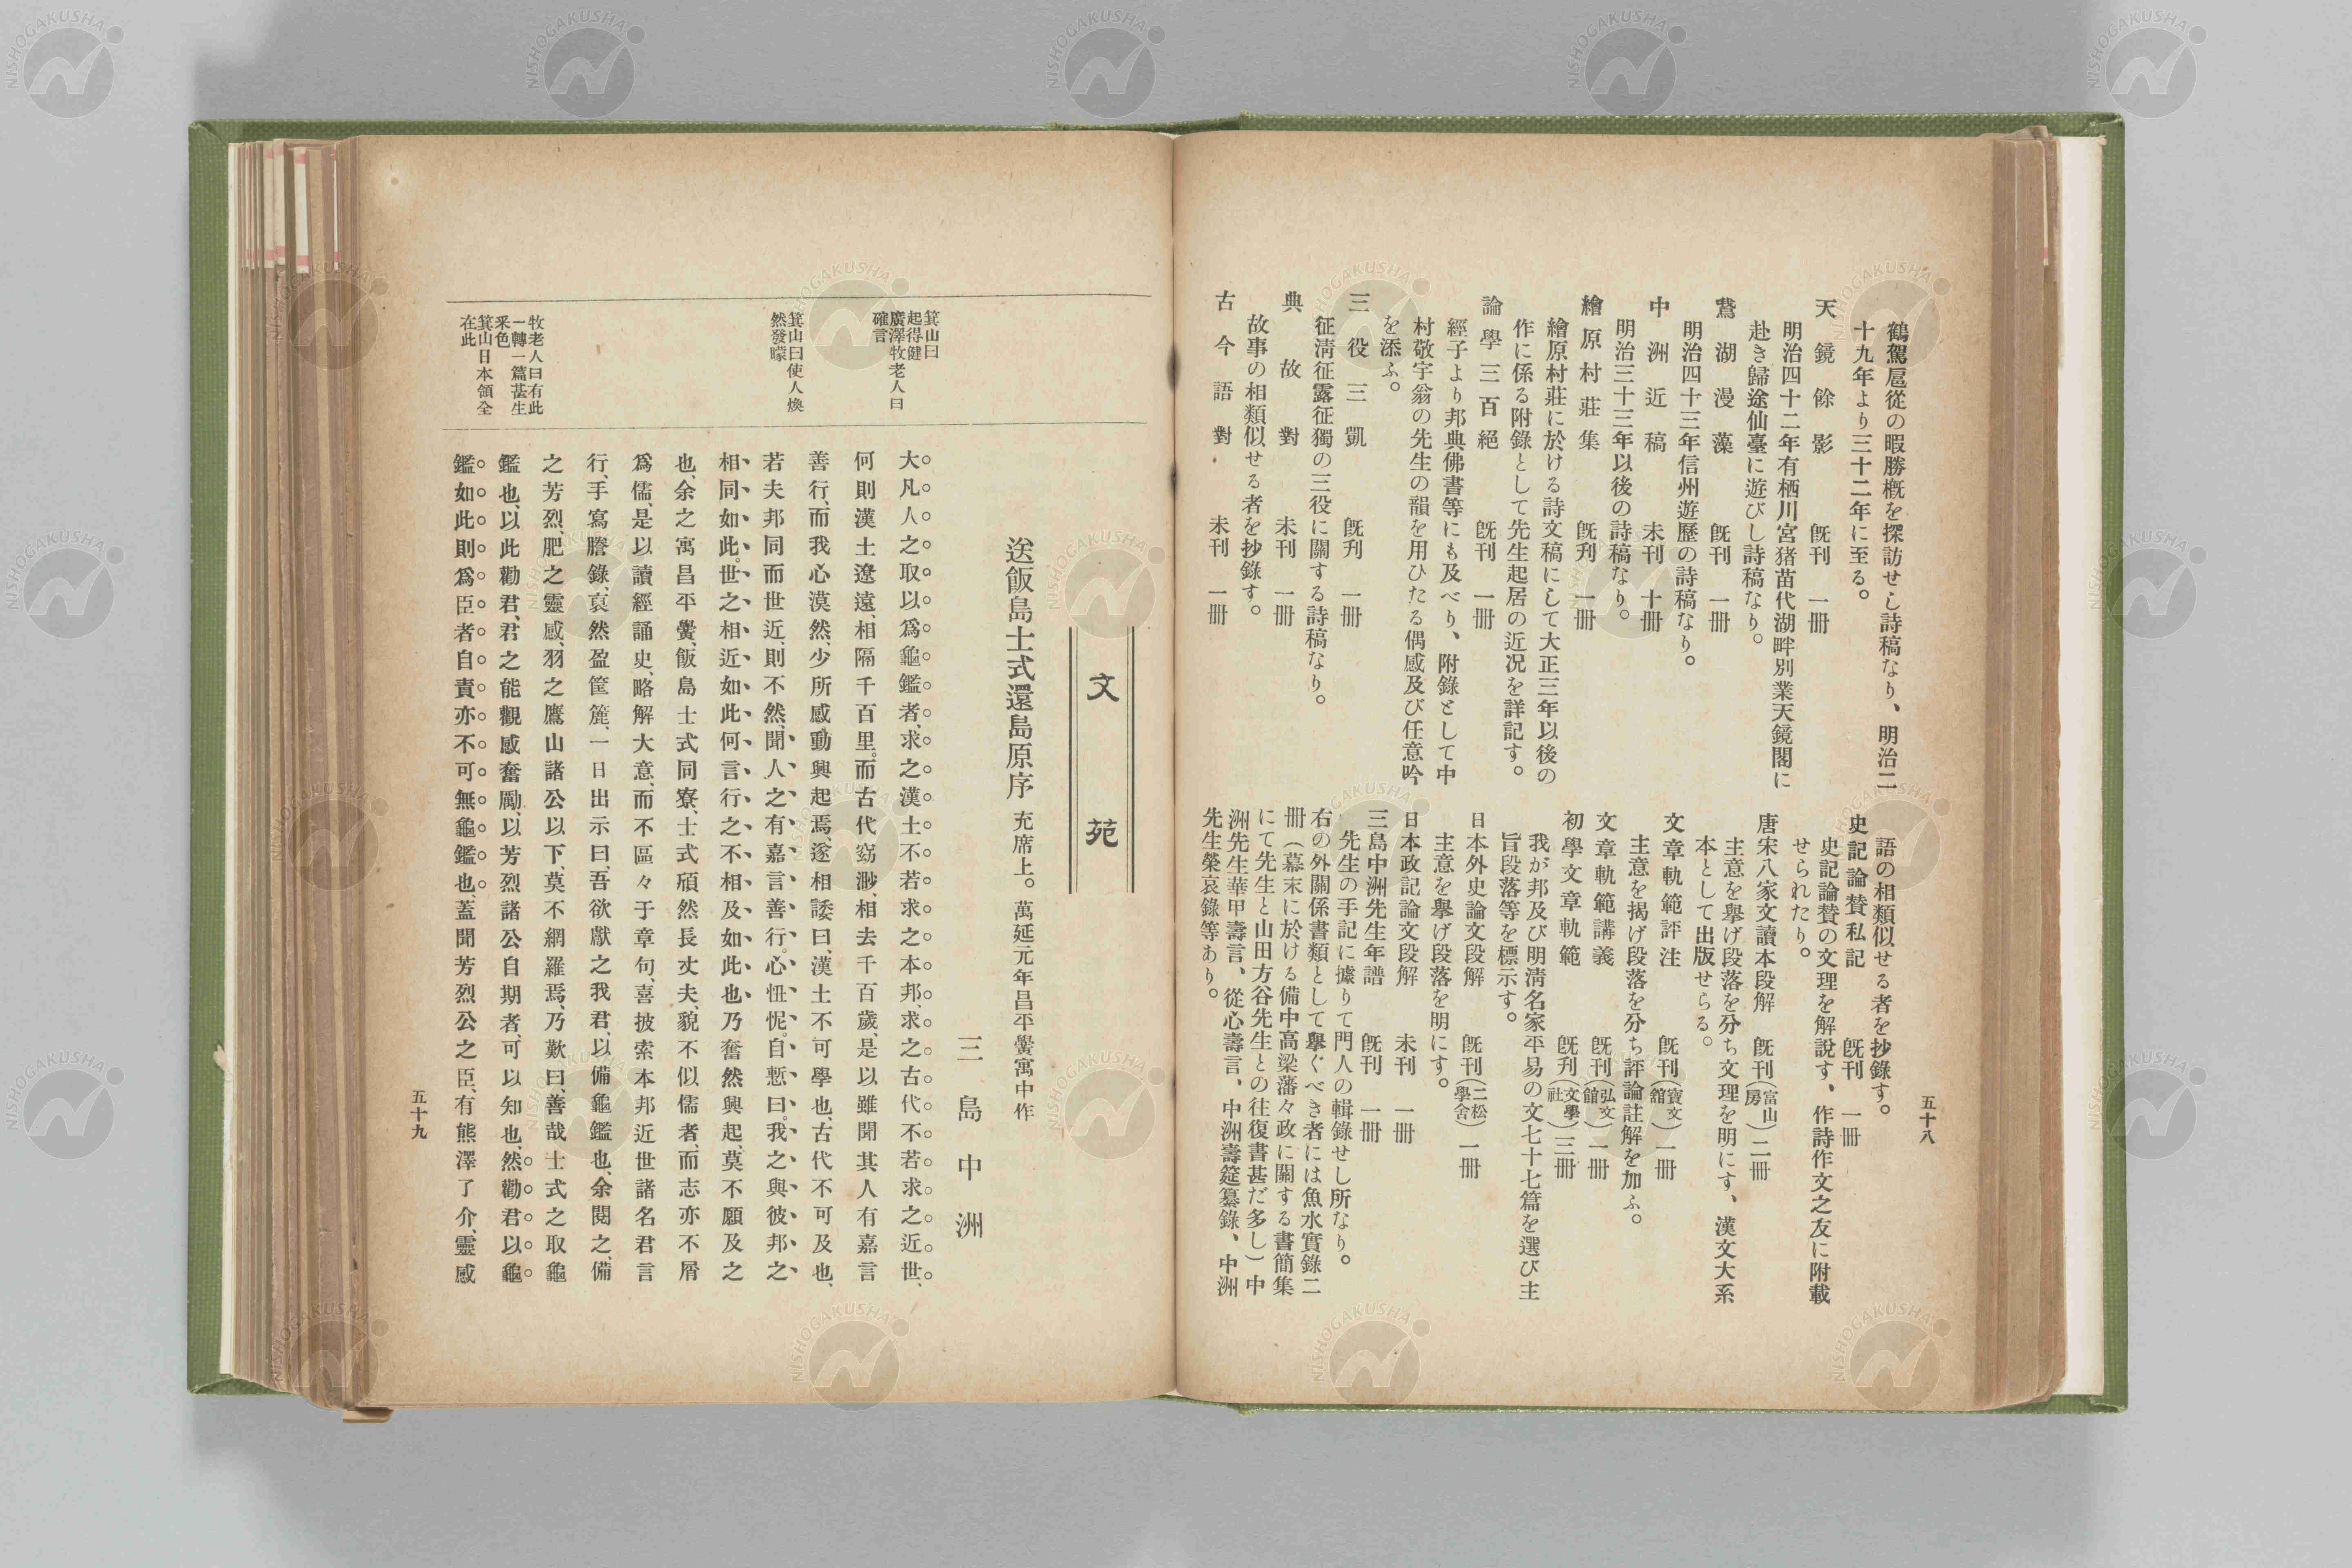 鶴駕扈從の暇勝槪を探訪せし詩稿なり、明治二
十九年より三十二年に至る。
天鏡餘影 既刊 一冊
明治四十二年有栖川宮猪苗代湖畔別業天鏡閣に
赴き歸途仙臺に遊びし詩稿なり。
鵞湖漫藻 既刊 一冊
明治四十三年信州遊歷の詩稿なり。
中洲近稿 未刊 十冊
明治三十三年以後の詩稿なり。
繪原村莊集 既刋 一冊
繪原村莊に於ける詩文稿にして大正三年以後の
作に係る附錄として先生起居の近況を詳記す。
論學三百絕 既刊 一冊
經子より邦典佛書等にも及べり、附錄として中
村敬宇翁の先生の韻を用ひたる偶感及び任意吟
を添ふ。
三役三凱 既刋 一冊
征淸征露征獨の三役に關する詩稿なり。
典故對 未刊 一冊
故事の相類似せる者を抄錄す。
古今語對 未刊 一冊
語の相類似せる者を抄錄す。
史記論賛私記 既刊 一冊
史記論賛の文理を解說す、作詩作文之友に附載
せられたり。
唐宋八家文讀本段解 既刊(富山房)二冊
主意を擧げ段落を分ち文理を明にす、漢文大系
本として出版せらる。
文章軌範評注 既刊(寶文館)一冊
主意を揭げ段落を分ち評論註解を加ふ。
文章軌範講義 既刊(弘文館)一冊
初學文章軌範 既刋(文學社)三冊
我が邦及び明淸名家平易の文七十七篇を選び主
旨段落等を標示す。
日本外史論文段解 既刊(二松學舍)一冊
主意を擧げ段落を明にす。
日本政記論文段解 未刊 一冊
三島中洲先生年譜 既刊 一冊
先生の手記に據りて門人の輯錄せし所なり。
右の外關係書類として擧ぐべき者には魚水實錄二
冊(幕末に於ける備中高梁藩々政に關する書簡集
にて先生と山田方谷先生との往復書甚だ多し)中
洲先生華甲壽言、從心壽言、中洲壽筵纂錄、中洲
先生榮哀錄等あり。
五十八
文苑
送飯島士式還島原序 充席上。萬延元年昌平黌寓中作
三島中洲
大凡人之取以爲龜鑑者、求之漢土不若求之本邦、求之古代不若求之近世、
何則漢土遼遠、相隔千百里。而古代窈渺、相去千百歲、是以雖聞其人有嘉言
善行、而我心漠然、少所感動興起焉、遂相諉曰、漢土不可學也、古代不可及也、
若夫邦同而世近、則不然、聞人之有嘉言善行。心忸怩。自慙曰。我之與彼邦之
相同如此。世之相近如此、何言行之不相及如此也、乃奮然興起、莫不願及之
也、余之寓昌平黌、飯島士式同寮、士式頎然長丈夫、貌不似儒者、而志亦不屑
爲儒、是以讀經誦史、略解大意、而不區々于章句、喜披索本邦近世諸名君言
行、手寫謄錄、裒然盈筐簏、一日出示曰、吾欲獻之我君、以備龜鑑也、余閱之、備
之芳烈、肥之靈感、羽之鷹山諸公以下、莫不網羅焉、乃歎曰、善哉士式之取龜
鑑也、以此勸君、君之能觀感奮勵、以芳烈諸公自期者、可以知也、然勸君以龜
鑑如此則爲臣者自責亦不可無龜鑑也、蓋聞芳烈公之臣、有熊澤了介、靈感
箕山曰
起得健
廣澤牧老人曰
確言
箕山曰使人煥
然發矇
牧老人曰有此
一轉一篇甚生
釆色
箕山曰本領全
在此
五十九
NISHOGAKUSHA